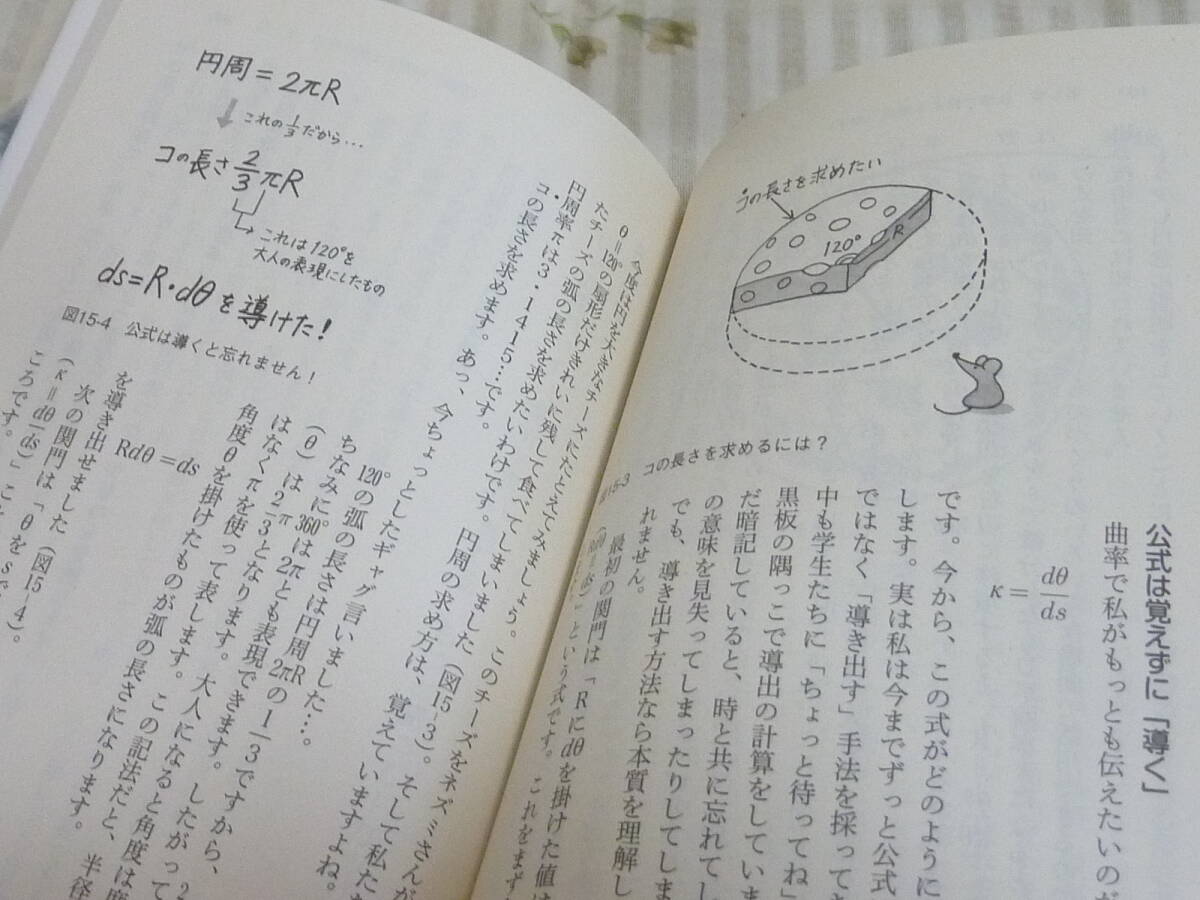 公式は覚えずに「導く」
曲率で私がもっとも伝えたいのが
κ= dθ/ds
です。今から、この式がどのように
します。実は私は今までずっと公式
ではなく「導き出す」手法を採ってき
中も学生たちに「ちょっと待ってね」
黒板の隅っこで導出の計算をしていま
だ暗記していると、時と共に忘れてし
の意味を見失ってしまったりしてしま
でも、導き出す方法なら本質を理解し
れません。
最初の関門は「Rにdθを掛けた値は
(Rdθ=ds)」という式です。これをまず
コの長さを求めたい
120°
R
図15-3 コの長さを求めるには？
今度は円を大きなチーズにたとえてみましょう。このチーズをネズミさんが
θ=120°の扇形だけきれいに残して食べてしまいました(図15-3)。そして私た
たチーズの弧の長さを求めたいわけです。円周の求め方は、覚えていますよね。
円周率πは3・1415…です。
コの長さを求めます。あっ、今ちょっとしたギャグ言いました…。
120°の弧の長さは円周2πRの1/3ですから、
ちなみに360°は2πとも表現できます。したがって
(θ)は2π/3となります。大人になると角度は度
はなくπを使って表します。この記法だと、半径
角度θを掛けたものが弧の長さになります。
Rdθ=ds
を導き出せました(図15-4)。
次の関門は「θをsで
(κ=dθ/ds)」こ
ころです。
円周=2πR
これの1/3だから…
コの長さ2/3πR
これは120°を
大人の表現にしたもの
ds=R・dθを導けた!
図15-4 公式は導くと忘れません！